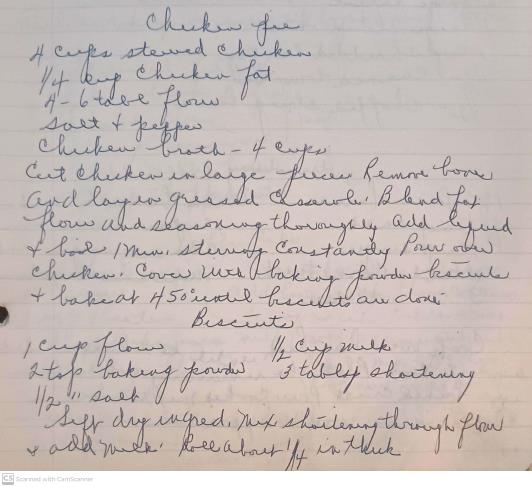 Chicken pie
4 cups stewed chicken
1/4 cup chicken fat
4-6 tabl flour
salt + pepper
chicken broth - 4 cups
Cut chicken in large pieces Remove bone
and lay in greased casserole. Blend fat
flour and seasoning thoroughly add liquid
+ boil 1 min. stirring constantly Pour over
chicken. Cover with baking powder biscuits
+ bake at 450° until biscuits are done.
Biscuits
1 cup flour 1/2 cup milk
2 tsp baking powder 3 tablsp shortening
1/2 " salt
Sift dry ingred. mix shortening through flour
+ add milk. Roll about 1/4 in thick
CS Scanned with CamScanner